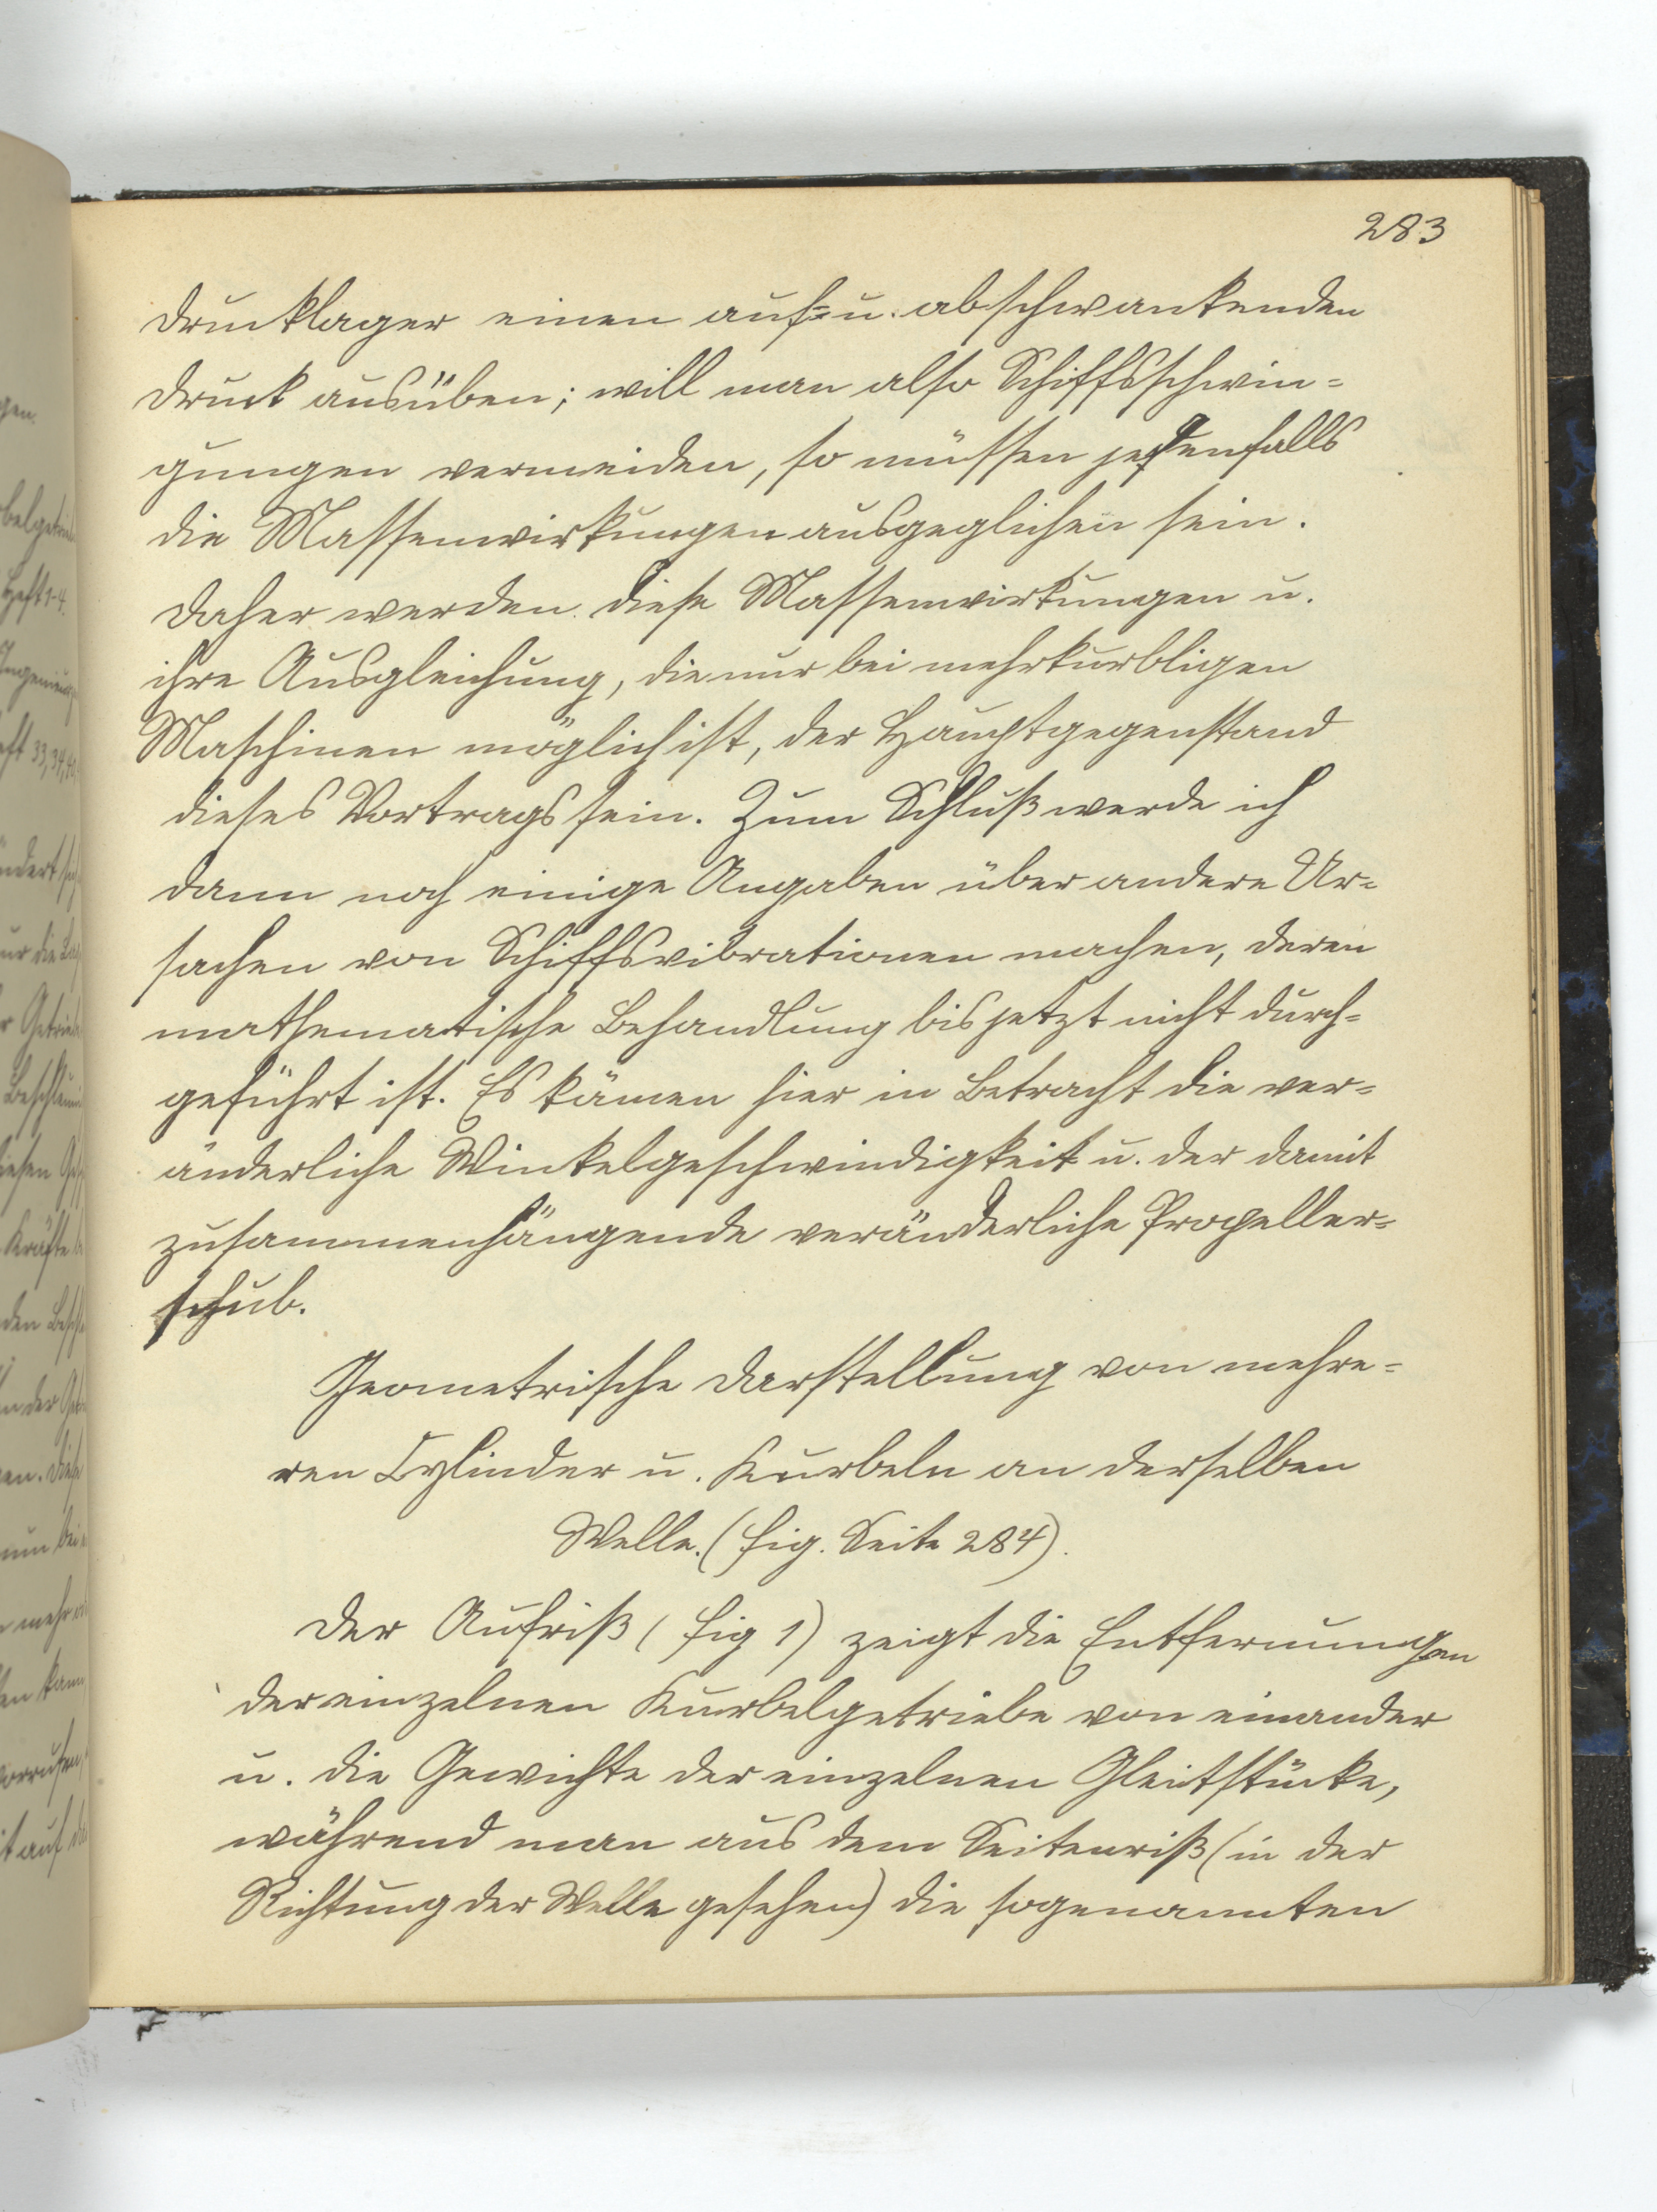 283
Drucklager einen auf= u. abschwankenden
Druck ausüben; will man also Schiffsschwin=
gungen vermeiden, so müssen jedenfalls
die Massenwirkungen ausgeglichen sein.
Daher werden diese Massenwirkungen u.
ihre Ausgleichung, die nur bei mehrkurbligen
Maschinen möglich ist, der Hauptgegenstand
dieses Vortrags sein. Zum Schluß werde ich
dann noch einige Angaben über andere Ur=
sachen von Schiffsvibrationen machen, deren
mathematische Behandlung bis jetzt nicht durch=
geführt ist. Es kämen hier in Betracht die ver=
änderliche Winkelgeschwindigkeit u. der damit
zusammenhängende veränderliche Propeller=
schub.
Geometrische Darstellung von mehre=
ren Cylinder u. Kurbeln an derselben
Welle. (Fig. Seite 284).
Der Aufriß (Fig 1) zeigt die Entfernungen
der einzelnen Kurbelgetriebe von einander
u. die Gewichte der einzelnen Gleitstücke,
während man aus dem Seitenriß (in der
Richtung der Welle gesehen) die sogenannten